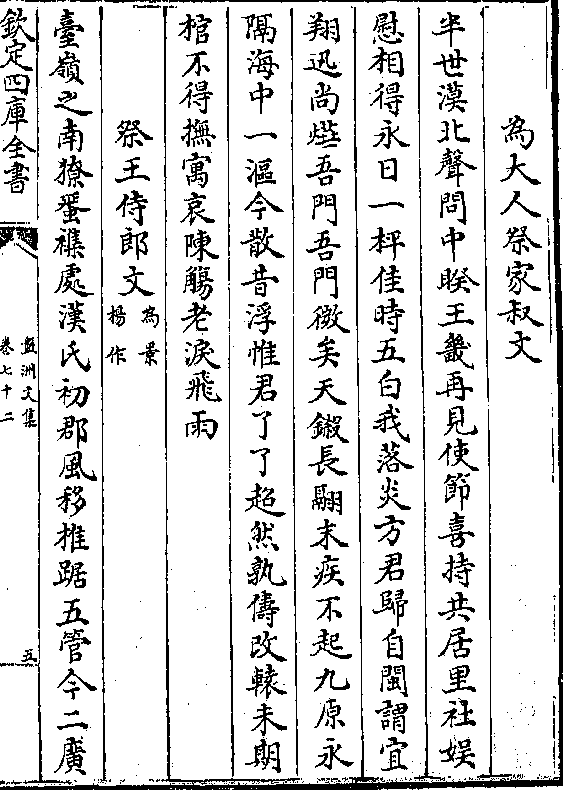 為大人祭家叔文
半世漠北聲問中睽王畿再見使節喜持共居里社娱
慰相得永日一枰佳時五白我落炎方君歸自閩謂宜
翔迅尚燕吾門吾門微矣天鎩長翮末疾不起九原永
隔海中一漚今散昔浮惟君了了超然孰儔改轅未期
棺不得撫寓哀陳觴老淚飛雨
祭王侍郎文為景楊作
臺嶺之南獠蜑襍處漢氏初郡風移推踞五管今二廣
欽定四庫全書
盤洲文集
卷七十二
五